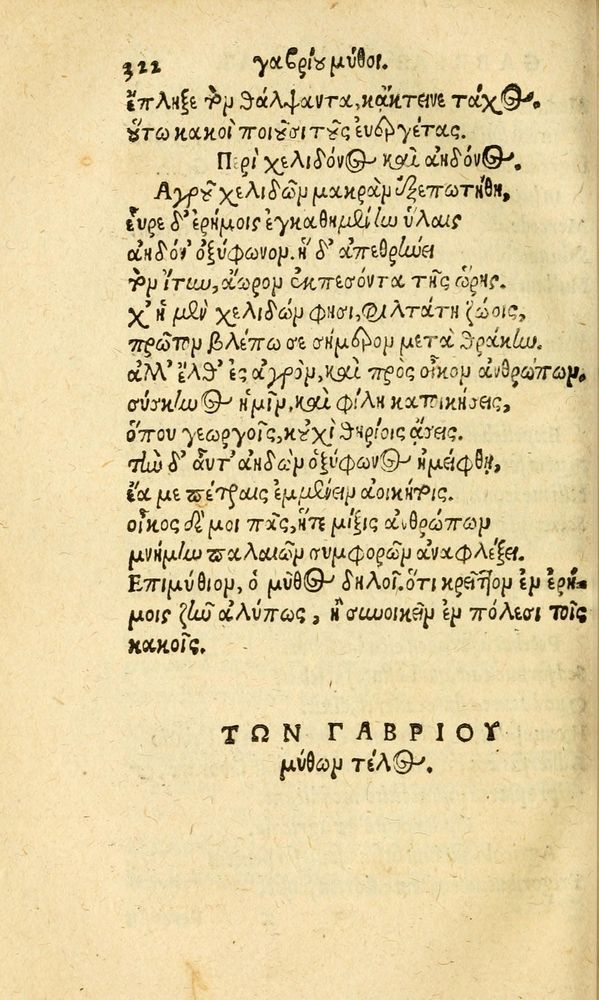 322 γαβρίου μῦθοι.
ἔπληξε τὸν θάλψαντα, κἄκτεινε τάχος.
οὕτω κακοὶ ποιοῦσι τοὺς ἐυεργέτας.
Περὶ χελιδόνος καὶ ἀηδόνος.
Αγροῦ χελιδὼν μακρὰν ἐξεπωτήθη,
εὗρε δ' ἐρήμοις ἐγκαθημένην ὕλαις
ἀηδόν' ὀξύφωνον. ἡ δ' ἀπεθρήνει
τὸν ἴτυν, ἄωρον ἐκπεσόντα τῆς ὥρης.
χ' ἡ μὲν χελιδών φησι, φιλτάτη ζώοις,
πρῶτον βλέπω σε σήμερον μετὰ θράκην.
ἀλλ' ἔλθ' ἐς ἀγρὸν, καὶ πρὸς οἶκον ἀνθρώπων.
σύσκηνος ἡμῖν, καὶ φίλη κατοικήσεις,
ὅπου γεωργοῖς, κοὐχὶ θηρίοις ἄσεις.
τὴν δ' αὖτ' ἀηδὼν ὀξύφωνος ἠμείφθη,
ἔα με πέτραις ἐμμένειν ἀοικήτοις.
οἶκος δέ μοι πᾶς, ἥτε μίξις ἀνθρώπων
μνήμην παλαιῶν συμφορῶν ἀναφλέξει.
Επιμύθιον, ὁ μῦθος δηλοῖ. ὅτι κρεῖττον ἐν ἐρή-
μοις ζῆν ἀλύπως, ἢ συνοικεῖν ἐν πόλεσι τοῖς
κακοῖς.
ΤΩΝ ΓΑΒΡΙΟΥ
μύθων τέλος.